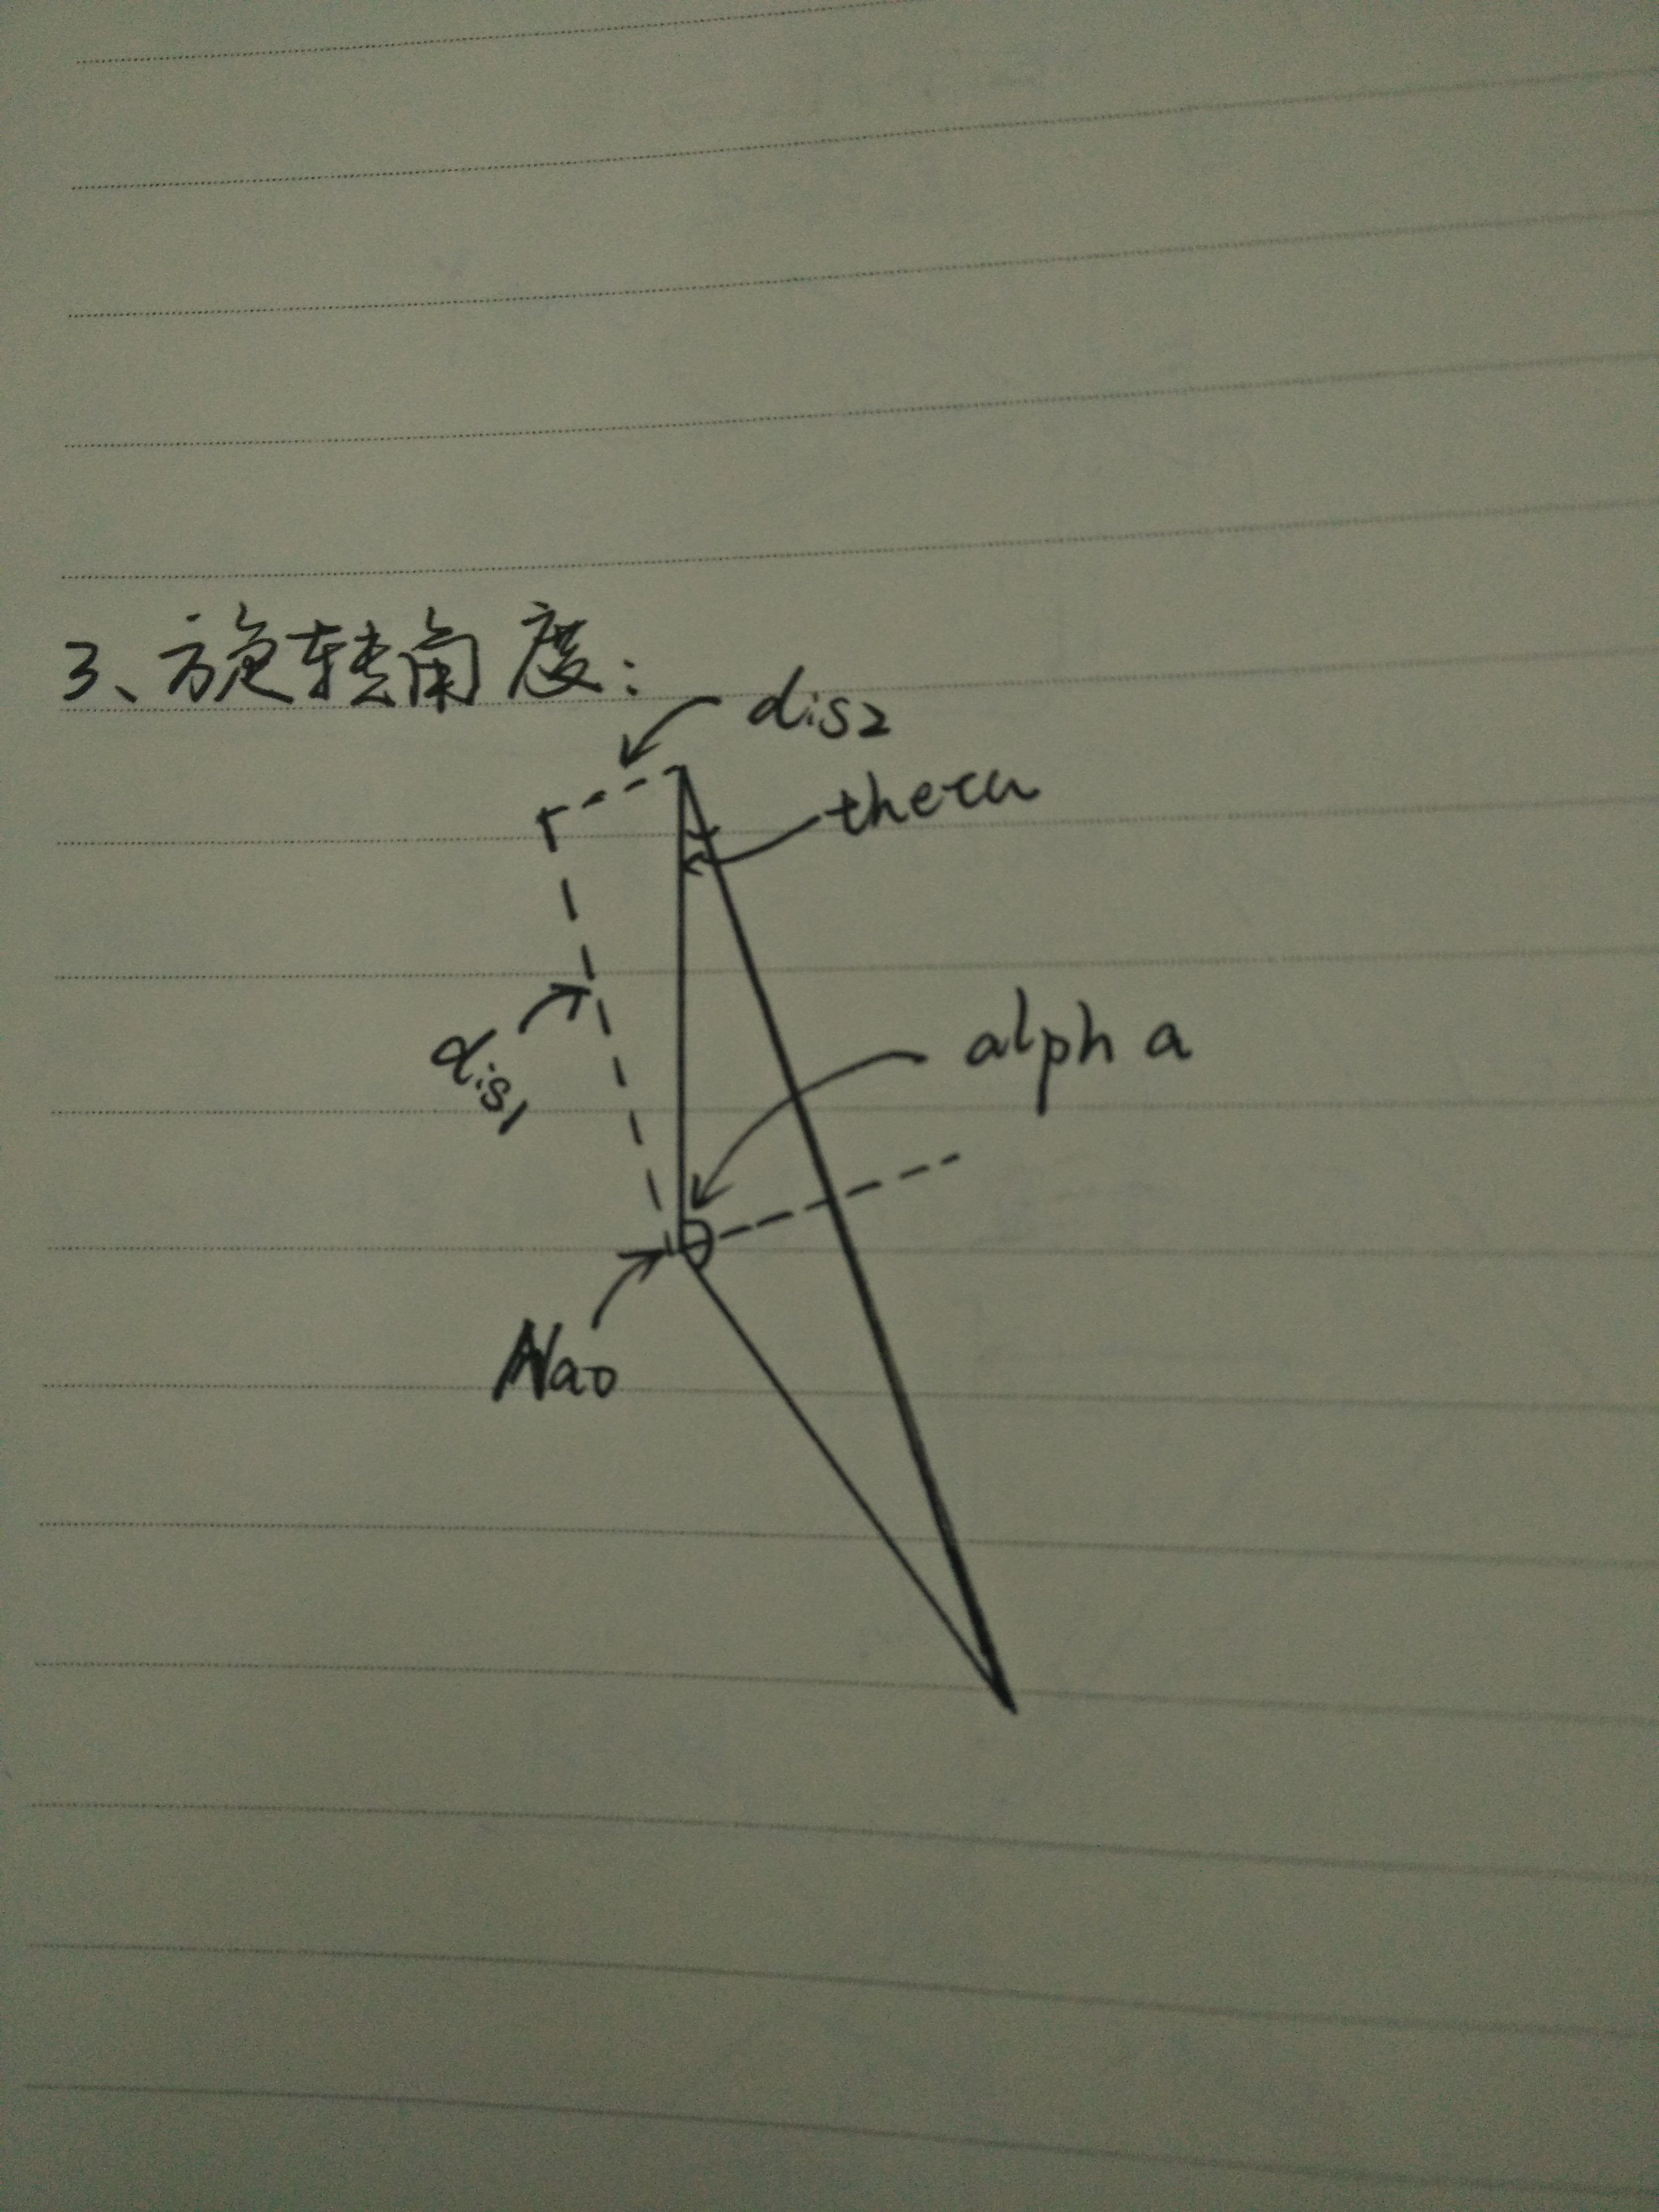 3、旋转角度:
dis2
theta
dis1
alpha
Nao